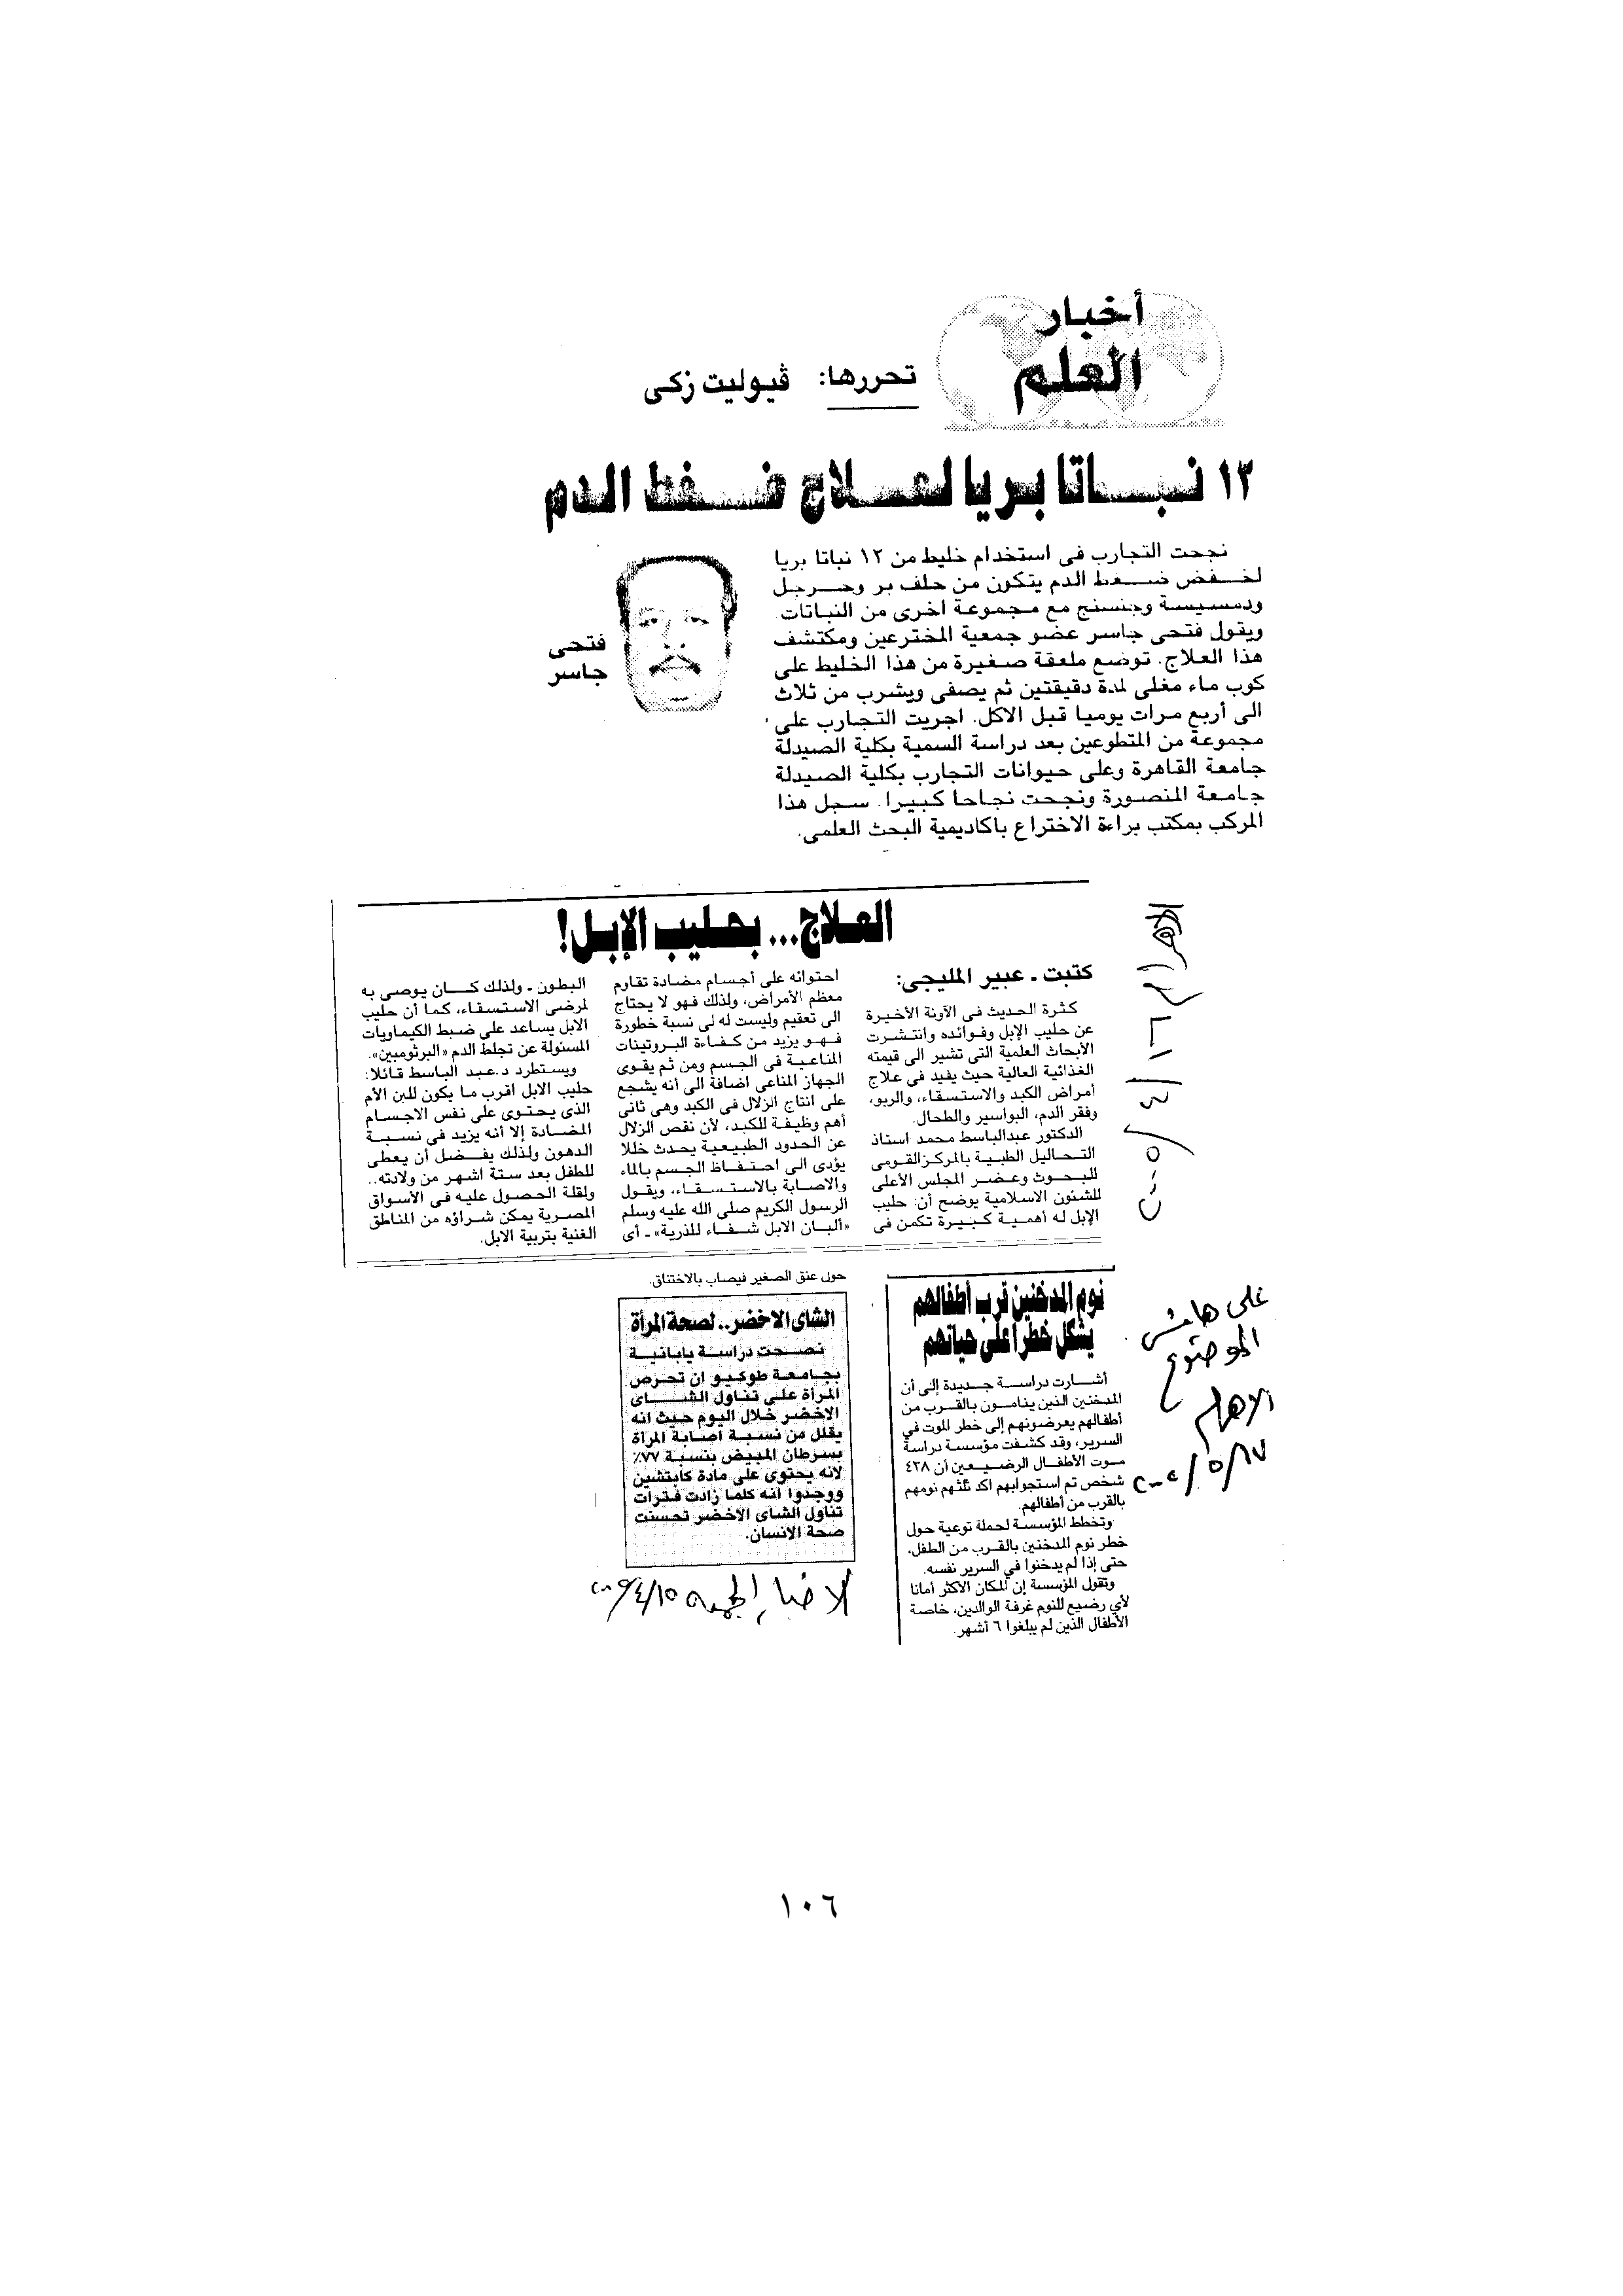 أخبار
العلم
تحررها: ڤيوليت زكى
١٢ نباتا بريا لعلاج ضغط الدم
نجحت التجارب فى استخدام خليط من ١٢ نباتا بريا
لخفض ضغط الدم يتكون من حلف بر وحرجل
ودمسيسة وجنسنج مع مجموعة اخرى من النباتات
ويقول فتحى جاسر عضو جمعية المخترعين ومكتشف
هذا العلاج. توضع ملعقة صغيرة من هذا الخليط على
كوب ماء مغلى لمدة دقيقتين ثم يصفى ويشرب من ثلاث
الى أربع مرات يوميا قبل الاكل. اجريت التجارب على
مجموعة من المتطوعين بعد دراسة السمية بكلية الصيدلة
جامعة القاهرة وعلى حيوانات التجارب بكلية الصيدلة
جامعة المنصورة ونجحت نجاحا كبيرا. سجل هذا
المركب بمكتب براءة الاختراع باكاديمية البحث العلمى.
فتحى
جاسر
العلاج... بحليب الإبل!
كتبت ـ عبير المليجى:
كثرة الحديث فى الآونة الأخيرة
عن حليب الإبل وفوائده وانتشرت
الأبحاث العلمية التى تشير الى قيمته
الغذائية العالية حيث يفيد فى علاج
أمراض الكبد والاستسقاء، والربو،
وفقر الدم، البواسير والطحال.
الدكتور عبدالباسط محمد استاذ
التحاليل الطبية بالمركز القومى
للبحوث وعضر المجلس الأعلى
للشئون الاسلامية يوضح أن: حليب
الإبل له أهمية كبيرة تكمن فى
احتوائه على أجسام مضادة تقاوم
معظم الأمراض، ولذلك فهو لا يحتاج
الى تعقيم وليست له لى نسبة خطورة
فهو يزيد من كفاءة البروتينات
المناعية فى الجسم ومن ثم يقوى
الجهاز المناعى اضافة الى أنه يشجع
على انتاج الزلال فى الكبد وهى ثانى
أهم وظيفة للكبد، لأن نقص الزلال
عن الحدود الطبيعية يحدث خللا
يؤدى الى احتفاظ الجسم بالماء
والاصابة بالاستسقاء، ويقول
الرسول الكريم صلى الله عليه وسلم
«ألبان الابل شفاء للذرية» ـ أى
البطون ـ ولذلك كان يوصى به
لمرضى الاستسقاء، كما أن حليب
الابل يساعد على ضبط الكيماويات
المسئولة عن تجلط الدم «البرثومبين».
ويستطرد د.عبد الباسط قائلا:
حليب الابل اقرب ما يكون للبن الأم
الذى يحتوى على نفس الاجسام
المضادة إلا أنه يزيد فى نسبة
الدهون ولذلك يفضل أن يعطى
للطفل بعد ستة اشهر من ولادته..
ولقلة الحصول عليه فى الأسواق
المصرية يمكن شراؤه من المناطق
الغنية بتربية الابل.
نوم المدخنين قرب أطفالهم
يشكل خطرا على حياتهم
أشارت دراسة جديدة إلى أن
المدخنين الذين ينامون بالقرب من
أطفالهم يعرضونهم إلى خطر الموت في
السرير، وقد كشفت مؤسسة دراسة
موت الأطفال الرضيعين أن ٤٣٨
شخص تم استجوابهم أكد ثلثهم نومهم
بالقرب من أطفالهم.
وتخطط المؤسسة لحملة توعية حول
خطر نوم المدخنين بالقرب من الطفل،
حتى إذا لم يدخنوا في السرير نفسه.
وتقول المؤسسة إن المكان الاكثر أمانا
لأي رضيع للنوم غرفة الوالدين، خاصة
الأطفال الذين لم يبلغوا ٦ أشهر.
على هامش
الموضوع
الاهرام
حول عنق الصغير فيصاب بالاختناق.
الشاى الاخضر.. لصحة المرأة
نصحت دراسة يابانية
بجامعة طوكيو ان تحرص
المرأة على تناول الشاى
الاخضر خلال اليوم حيث انه
يقلل من نسبة اصابة المرأة
بسرطان المبيض بنسبة ٧٧٪
لانه يحتوى على مادة كابتشين
ووجدوا انه كلما زادت فترات
تناول الشاى الاخضر تحسنت
صحة الانسان.
الاخبار الجمعه
١٠٦